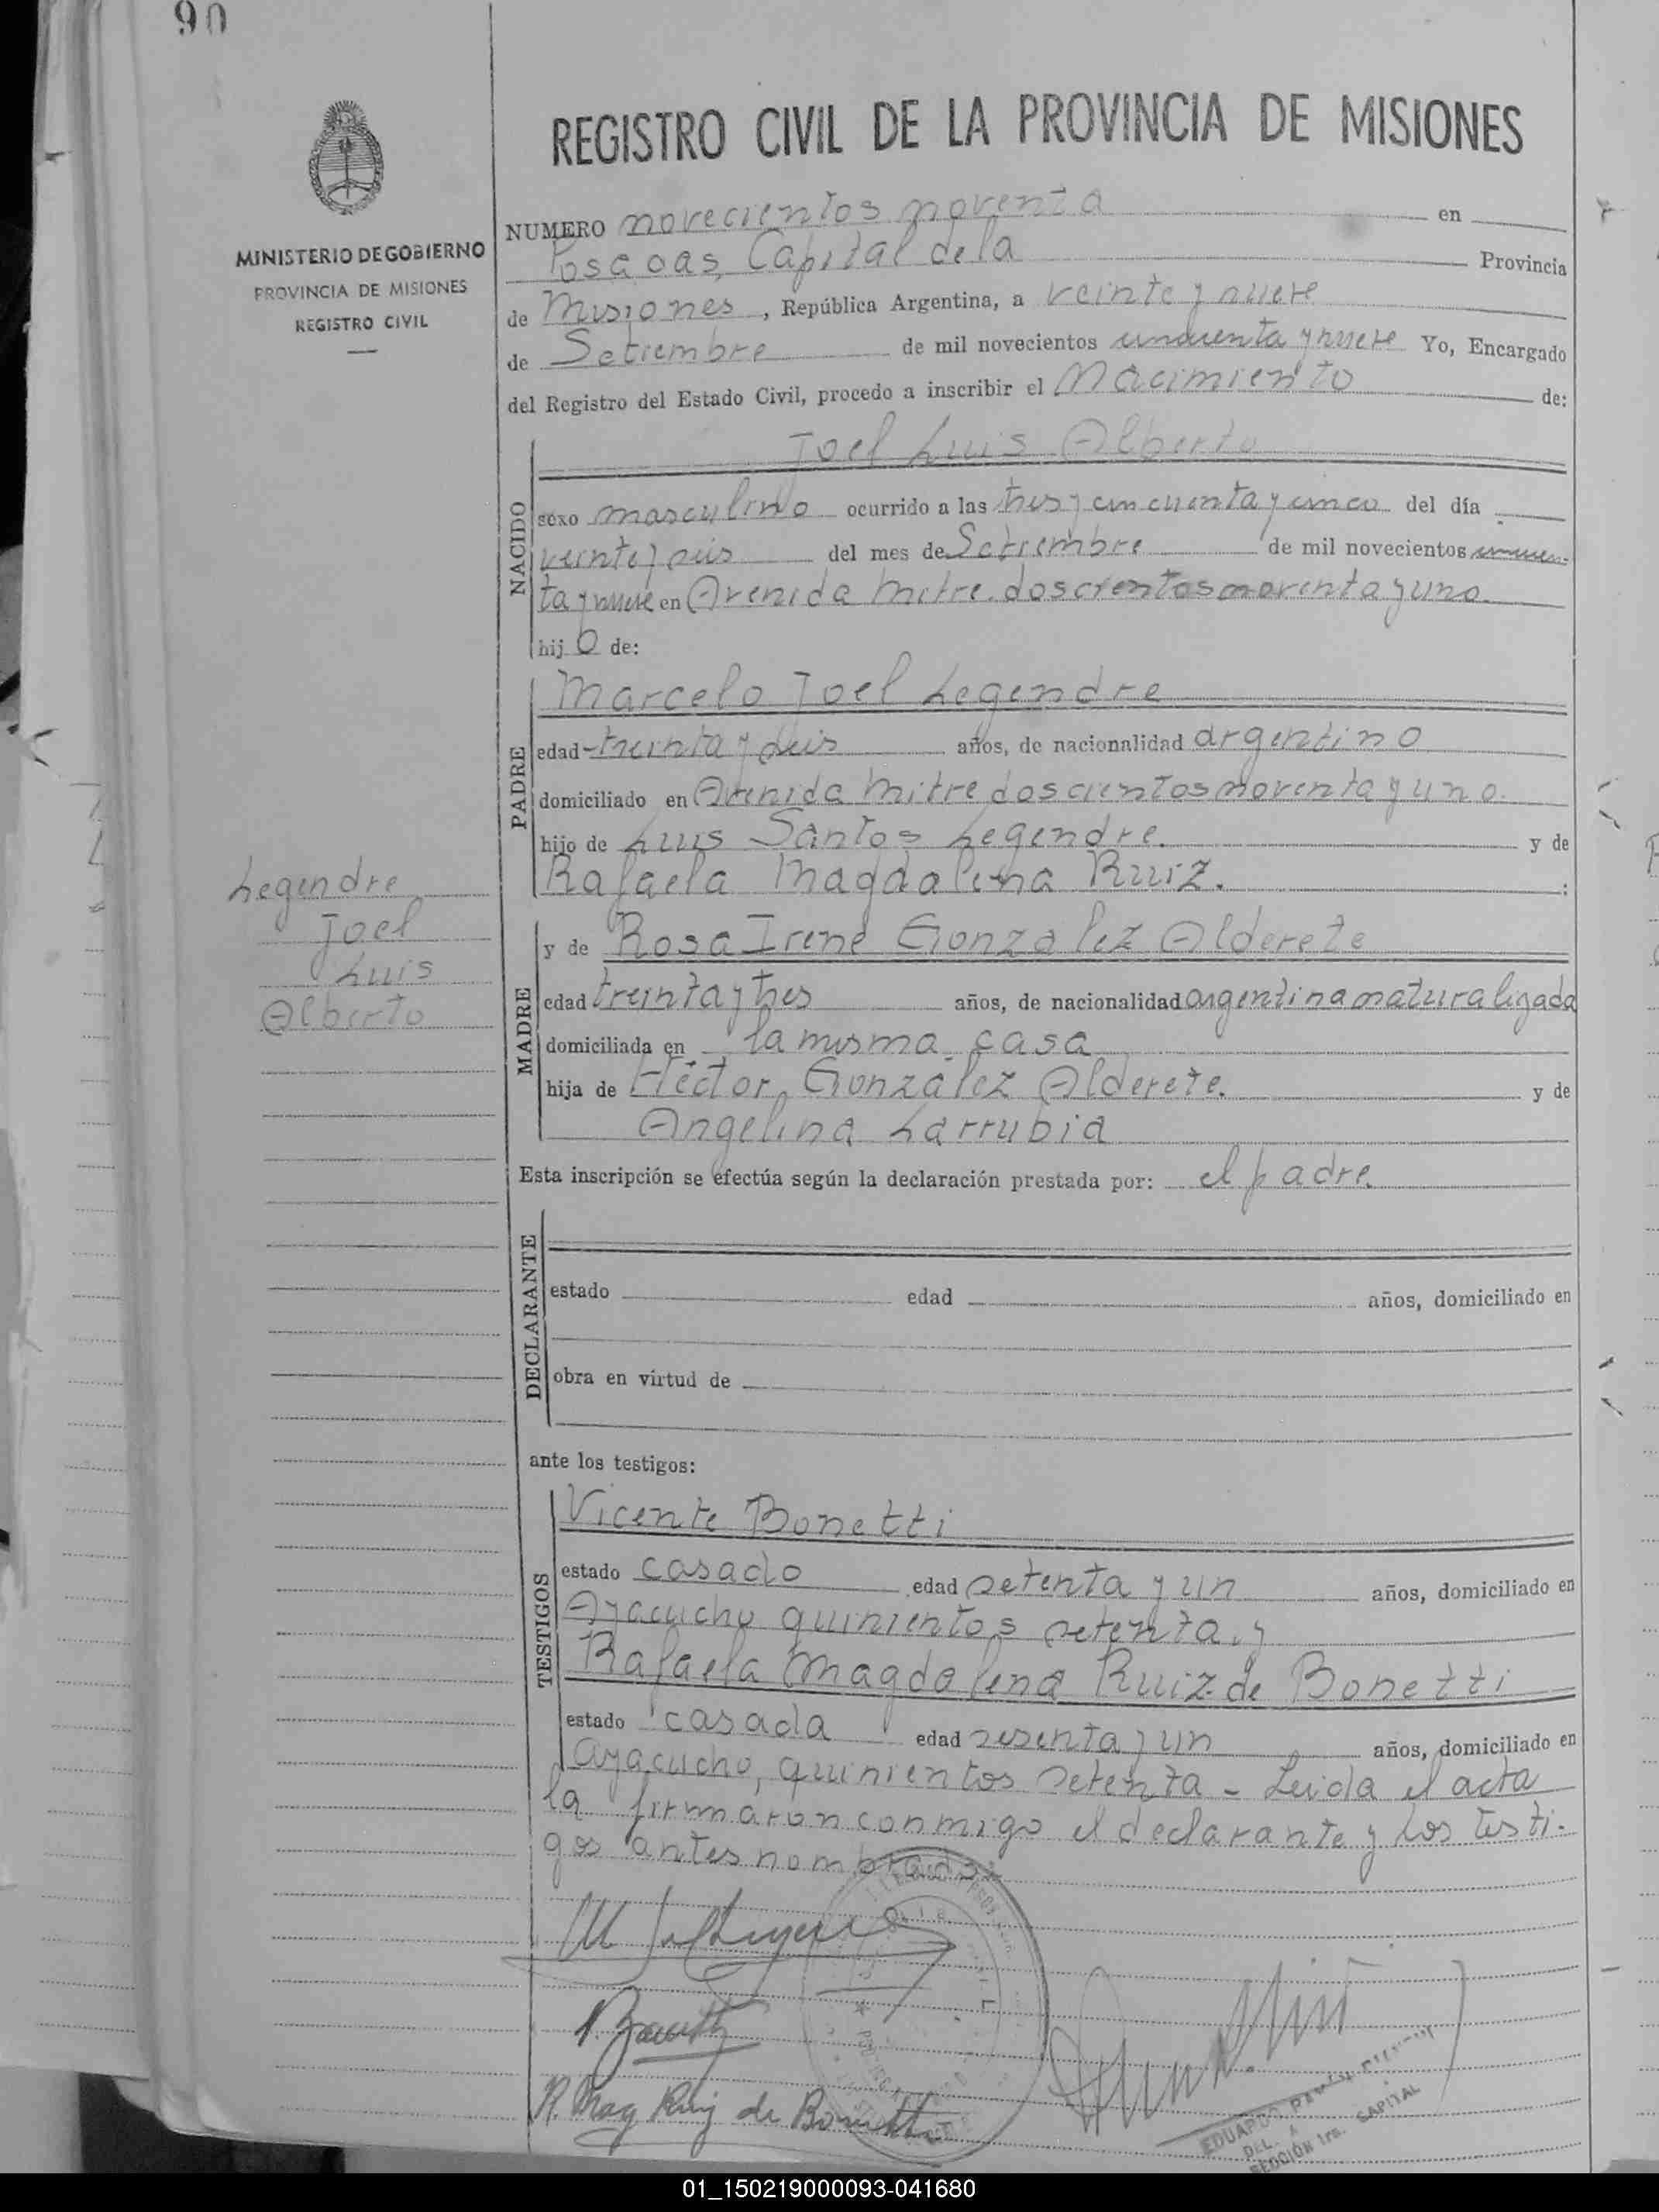 90
REGISTRO CIVIL DE LA PROVINCIA DE MISIONES
MINISTERIO DE GOBIERNO
PROVINCIA DE MISIONES
REGISTRO CIVIL
NUMERO novecientos noventa en
Posadas, Capital de la Provincia
de Misiones, República Argentina, a veinte y nueve
de Setiembre de mil novecientos cincuenta y nueve Yo, Encargado
del Registro del Estado Civil, procedo a inscribir el Nacimiento de:
NACIDO
Joel Luis Alberto
sexo masculino ocurrido a las tres y cincuenta y cinco del día
veinte y seis del mes de Setiembre de mil novecientos cincuen-
ta y nueve en Avenida Mitre doscientos noventa y uno.
hijo de:
PADRE
Marcelo Joel Legendre
edad treinta y seis años, de nacionalidad argentino
domiciliado en Avenida Mitre doscientos noventa y uno.
hijo de Luis Santos Legendre. y de
Rafaela Magdalena Ruiz. :
Legendre
Joel
Luis
Alberto
MADRE
y de Rosa Irene Gonzalez Alderete
edad treinta y tres años, de nacionalidad argentina naturalizada
domiciliada en la misma casa
hija de Héctor Gonzalez Alderete. y de
Angelina Larrubia
Esta inscripción se efectúa según la declaración prestada por: el padre
DECLARANTE
estado edad años, domiciliado en
obra en virtud de
ante los testigos:
TESTIGOS
Vicente Bonetti
estado casado edad setenta y un años, domiciliado en
Ayacucho quinientos setenta, y
Rafaela Magdalena Ruiz de Bonetti
estado casada edad sesenta y un años, domiciliado en
Ayacucho, quinientos setenta - Leida el acta
la firmaron conmigo el declarante y los testi-
gos antes nombrados
R. Mag Ruiz de Bonetti
EDUARDO
DEL.
SECCIÓN 1ra. CAPITAL
01_150219000093-041680